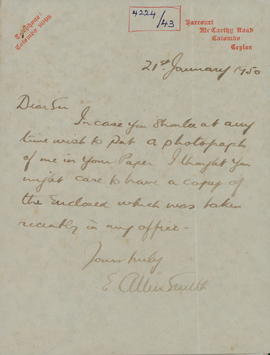 4224/43
Telephone
Colombo
Barcourt
McCarthy Road
Colombo
Ceylon
21st January 1950
Dear Sir
In case you should at any
time wish to put a photograph
of me in your Paper I thought you
might care to have a copy of
the Enclosed which was taken
recently in my office -
Yours truly
E Allen Smith